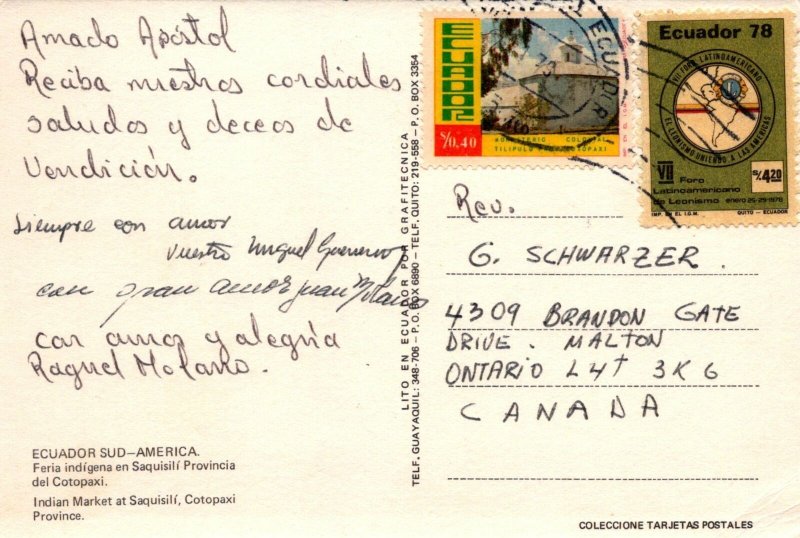 Amado Apóstol
Reciba nuestros cordiales
saludos y deceos de
Vendición.
Siempre con amor
vuestro Miguel Guerrero
con gran amor Juan Molano
con amor y alegría
Raquel Molano.
ECUADOR SUD-AMERICA.
Feria indígena en Saquisilí Provincia
del Cotopaxi.
Indian Market at Saquisilí, Cotopaxi
Province.
LITO EN ECUADOR POR GRAFITECNICA
TELF. GUAYAQUIL: 348-706 - P.O. BOX 6890 - TELF. QUITO: 219-558 - P.O. BOX 3354
ECUADOR
S/0,40
MONASTERIO COLONIAL
TILIPULO COTOPAXI
Ecuador 78
VII FORO LATINOAMERICANO
EL LEONISMO UNIENDO A LAS AMERICAS
VII Foro
Latinoamericano
de Leonismo enero 25-29-1978
S/. 4.20
IMP. EN EL I.G.M. QUITO - ECUADOR
Rev.
G. SCHWARZER.
4309 BRANDON GATE
DRIVE. MALTON
ONTARIO L4T 3K6
CANADA
COLECCIONE TARJETAS POSTALES